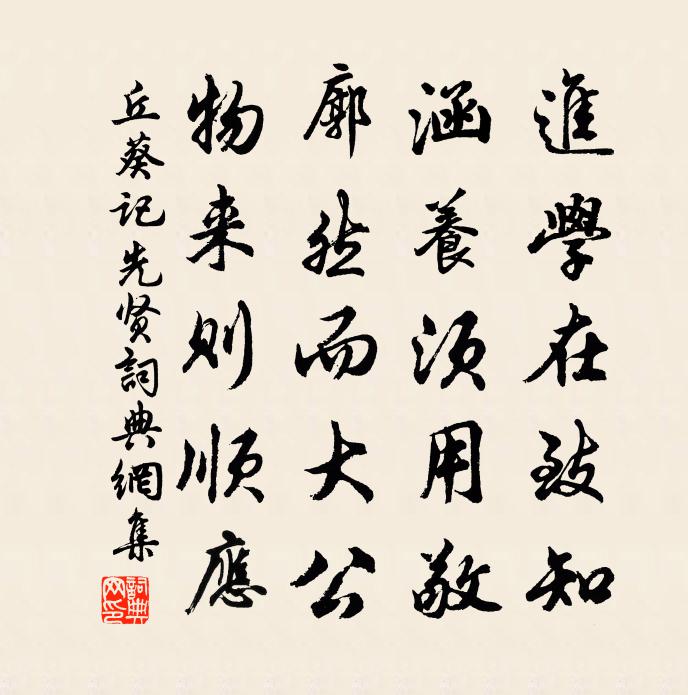 進學在致知
涵養須用敬
廓然而大公
物来則順應
丘葵记先贤詞典網集
詞典網印